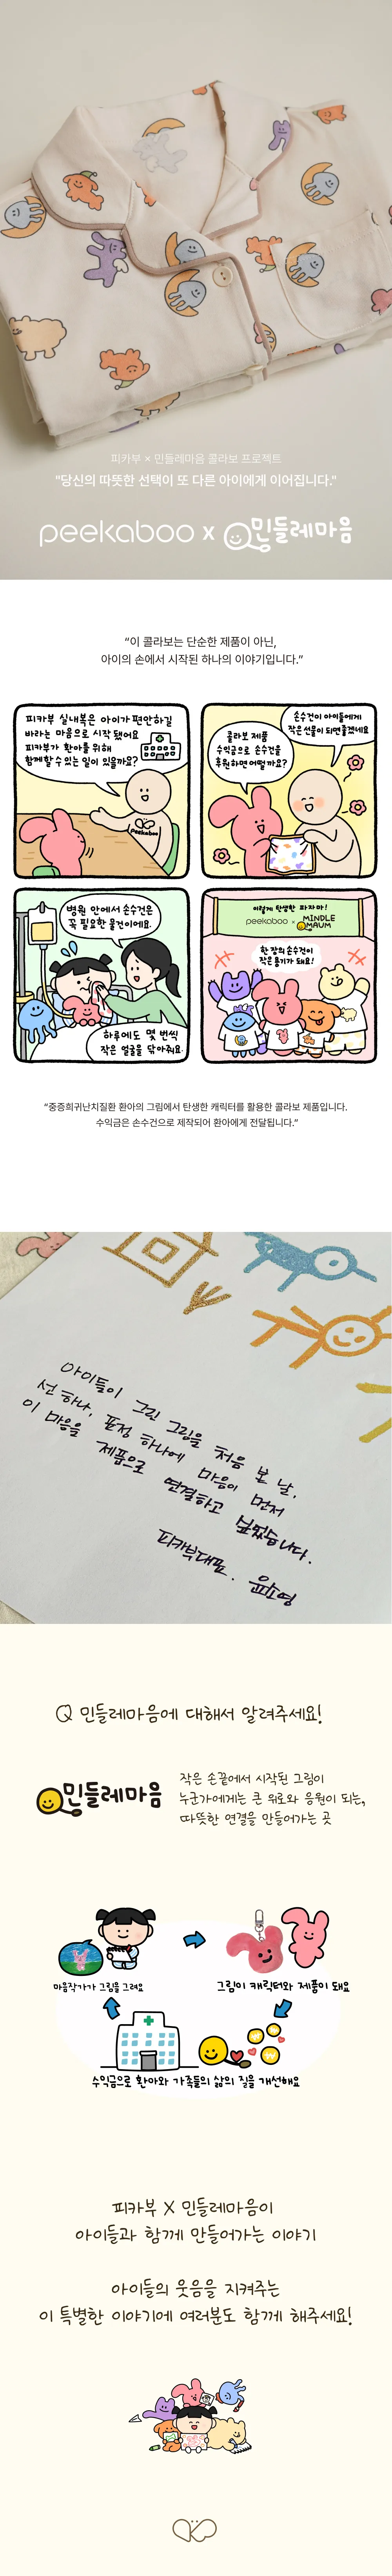 피카부 × 민들레마음 콜라보 프로젝트
"당신의 따뜻한 선택이 또 다른 아이에게 이어집니다."
peekaboo x 민들레마음
“이 콜라보는 단순한 제품이 아닌,
아이의 손에서 시작된 하나의 이야기입니다.”
피카부 실내복은 아이가 편안하길
바라는 마음으로 시작 됐어요
피카부가 환아를 위해
함께할 수 있는 일이 있을까요?
Peekaboo
콜라보 제품
수익금으로 손수건을
후원하면 어떨까요?
손수건이 아이들에게
작은 선물이 되면 좋겠네요
병원 안에서 손수건은
꼭 필요한 물건이에요.
하루에도 몇 번씩
작은 얼굴을 닦아줘요
이렇게 탄생한 파자마!
peekaboo × MINDLE
MAUM
한 장의 손수건이
작은 용기가 돼요!
“중증희귀난치질환 환아의 그림에서 탄생한 캐릭터를 활용한 콜라보 제품입니다.
수익금은 손수건으로 제작되어 환아에게 전달됩니다.”
아이들이 그린 그림을 처음 본 날,
선 하나, 표정 하나에 마음이 먼저
이 마음을 제품으로 연결하고 싶었습니다.
피카부대표. 윤소영
Q 민들레마음에 대해서 알려주세요!
민들레마음
작은 손끝에서 시작된 그림이
누군가에게는 큰 위로와 응원이 되는,
따뜻한 연결을 만들어가는 곳
마음작가가 그림을 그려요
그림이 캐릭터와 제품이 돼요
수익금으로 환아와 가족들의 삶의 질을 개선해요
피카부 X 민들레마음이
아이들과 함께 만들어가는 이야기
아이들의 웃음을 지켜주는
이 특별한 이야기에 여러분도 함께 해주세요!